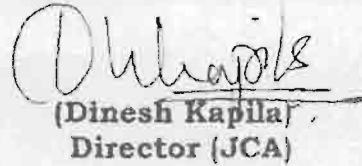 (Dinesh Kapila)
Director (JCA)